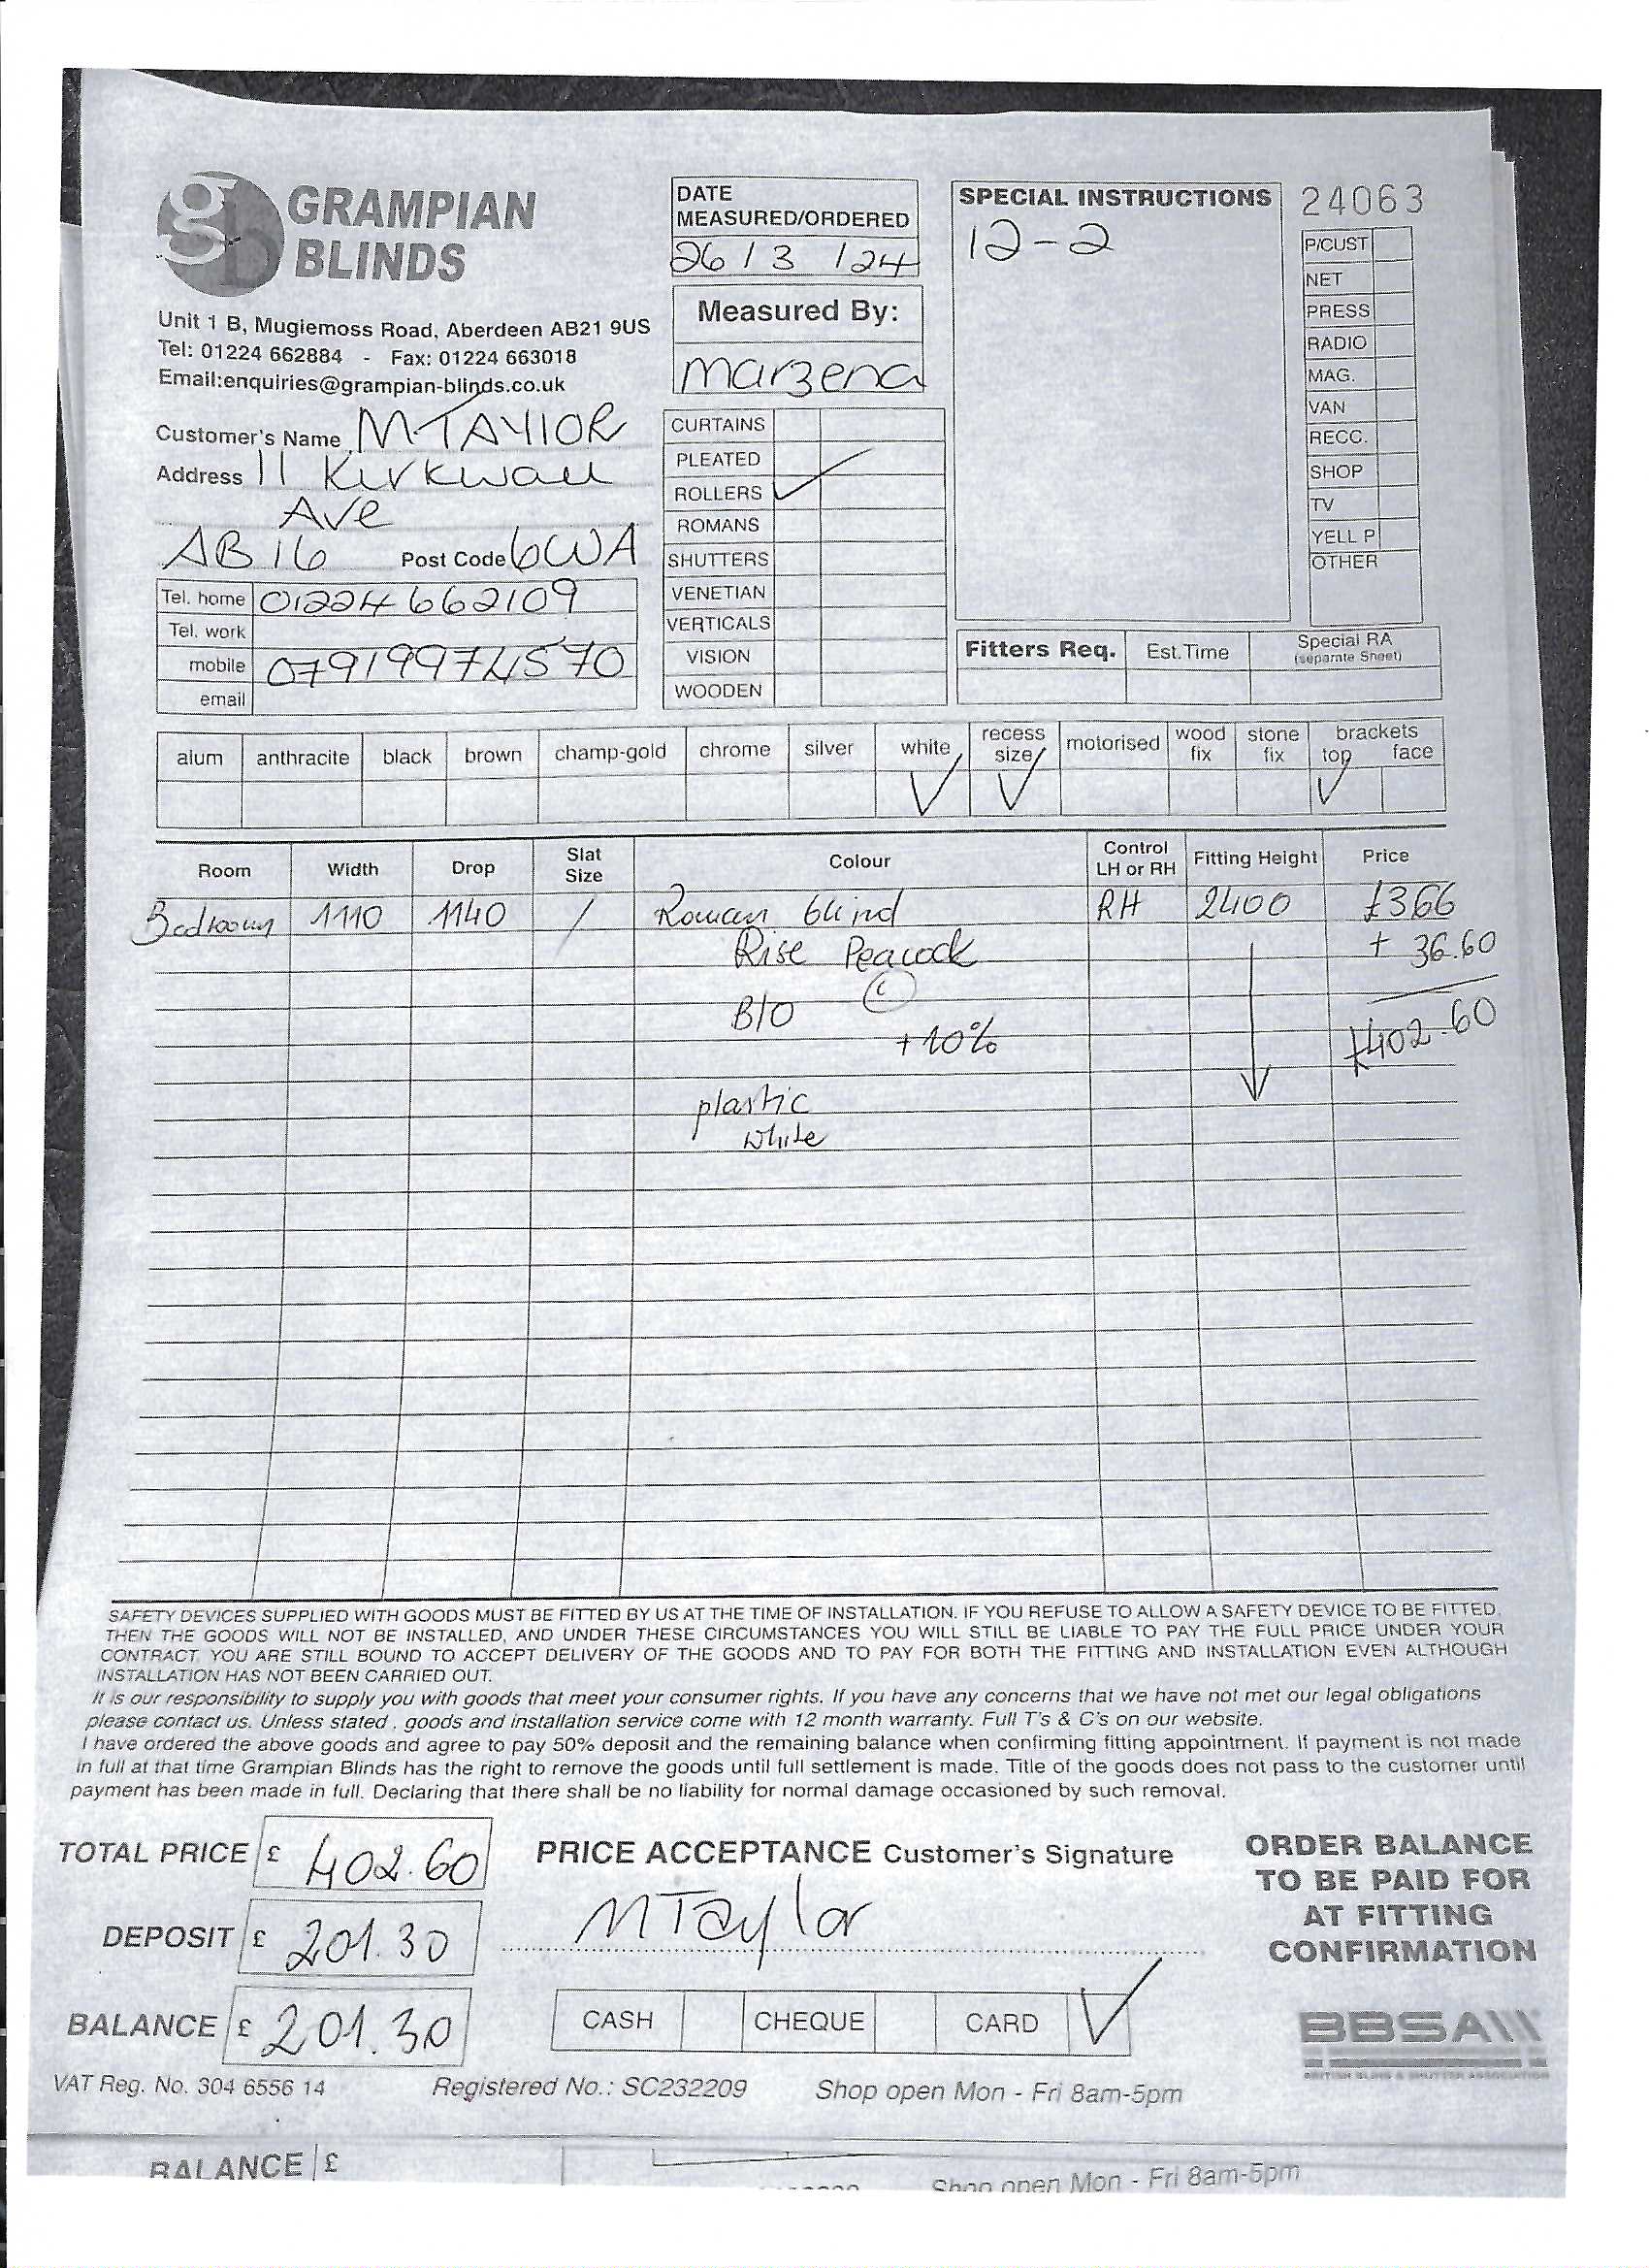 GRAMPIAN
BLINDS
Unit 1 B, Mugiemoss Road, Aberdeen AB21 9US
Tel: 01224 662884 - Fax: 01224 663018
Email:enquiries@grampian-blinds.co.uk
DATE
MEASURED/ORDERED
26 / 3 / 24
Measured By:
Marzena
SPECIAL INSTRUCTIONS
12-2
24063
P/CUST
NET
PRESS
RADIO
MAG.
VAN
RECC.
SHOP
TV
YELL P
OTHER
Customer's Name M TAYLOR
Address 11 Kirkwall
Ave
AB16 Post Code 6WA
Tel. home 01224 662109
Tel. work
mobile 07919974570
email
CURTAINS
PLEATED
ROLLERS
ROMANS
SHUTTERS
VENETIAN
VERTICALS
VISION
WOODEN
Fitters Req. Est.Time Special RA
(separate Sheet)
alum anthracite black brown champ-gold chrome silver white recess size motorised wood fix stone fix brackets top face
Room Width Drop Slat Size Colour Control LH or RH Fitting Height Price
Bedroom 1110 1140 / Roman blind RH 2400 £366
Rise Peacock + 36.60
B/O £402.60
+10%
plastic
white
SAFETY DEVICES SUPPLIED WITH GOODS MUST BE FITTED BY US AT THE TIME OF INSTALLATION. IF YOU REFUSE TO ALLOW A SAFETY DEVICE TO BE FITTED,
THEN THE GOODS WILL NOT BE INSTALLED, AND UNDER THESE CIRCUMSTANCES YOU WILL STILL BE LIABLE TO PAY THE FULL PRICE UNDER YOUR
CONTRACT. YOU ARE STILL BOUND TO ACCEPT DELIVERY OF THE GOODS AND TO PAY FOR BOTH THE FITTING AND INSTALLATION EVEN ALTHOUGH
INSTALLATION HAS NOT BEEN CARRIED OUT.
It is our responsibility to supply you with goods that meet your consumer rights. If you have any concerns that we have not met our legal obligations
please contact us. Unless stated , goods and installation service come with 12 month warranty. Full T's & C's on our website.
I have ordered the above goods and agree to pay 50% deposit and the remaining balance when confirming fitting appointment. If payment is not made
in full at that time Grampian Blinds has the right to remove the goods until full settlement is made. Title of the goods does not pass to the customer until
payment has been made in full. Declaring that there shall be no liability for normal damage occasioned by such removal.
TOTAL PRICE £ 402.60
DEPOSIT £ 201.30
BALANCE £ 201.30
PRICE ACCEPTANCE Customer's Signature
M Taylor
CASH CHEQUE CARD
ORDER BALANCE
TO BE PAID FOR
AT FITTING
CONFIRMATION
BBSA
BRITISH BLIND & SHUTTER ASSOCIATION
VAT Reg. No. 304 6556 14 Registered No.: SC232209 Shop open Mon - Fri 8am-5pm
BALANCE £
Shop open Mon - Fri 8am-5pm